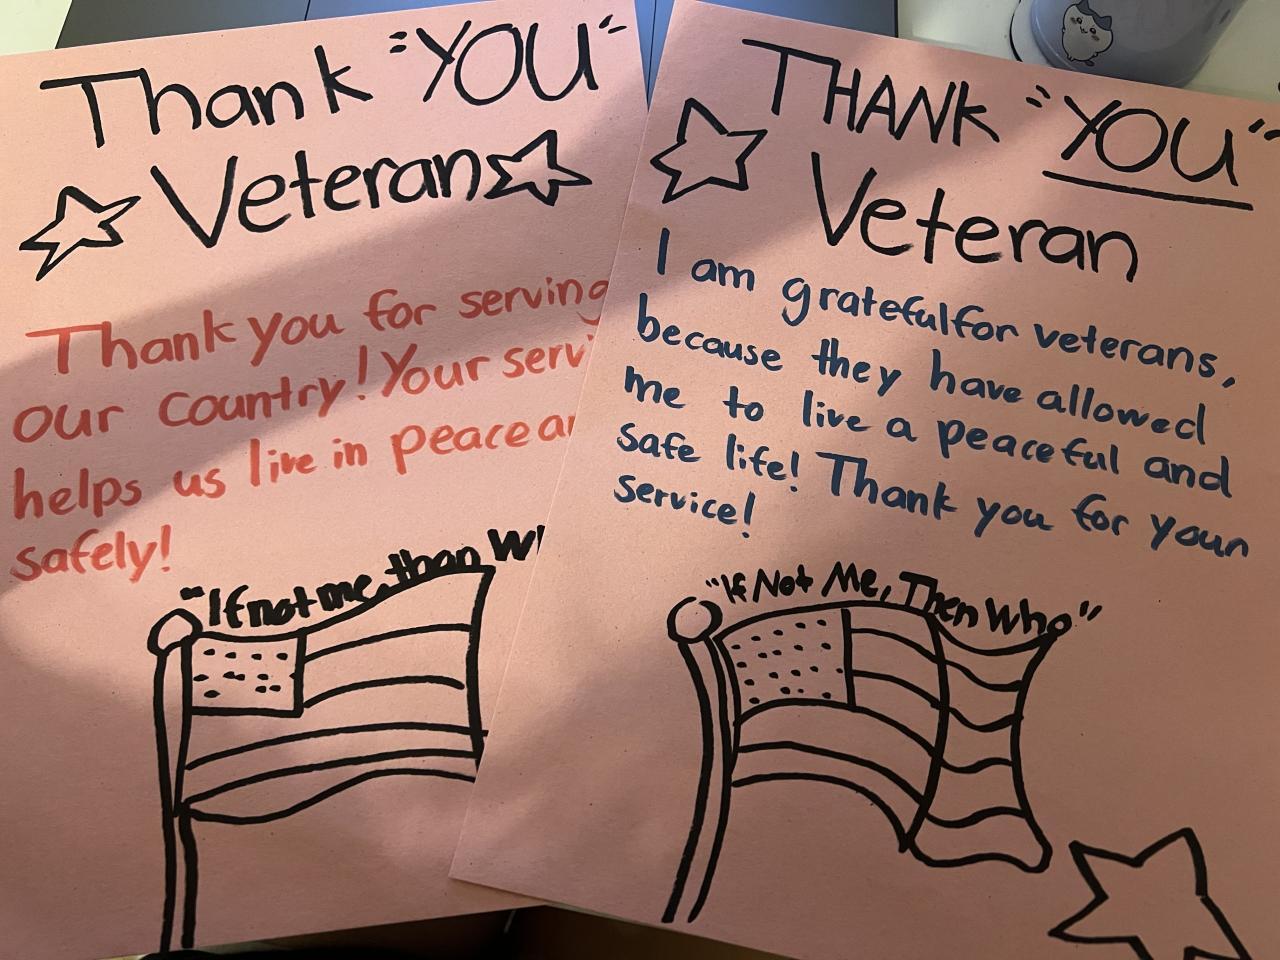 Thank "YOU"
Veteran
Thank you for serving
our country! Your serv
helps us live in peace an
safely!
"If not me, than Wh
THANK "YOU"
Veteran
I am grateful for veterans,
because they have allowed
me to live a peaceful and
safe life! Thank you for your
service!
"If Not Me, Then Who"